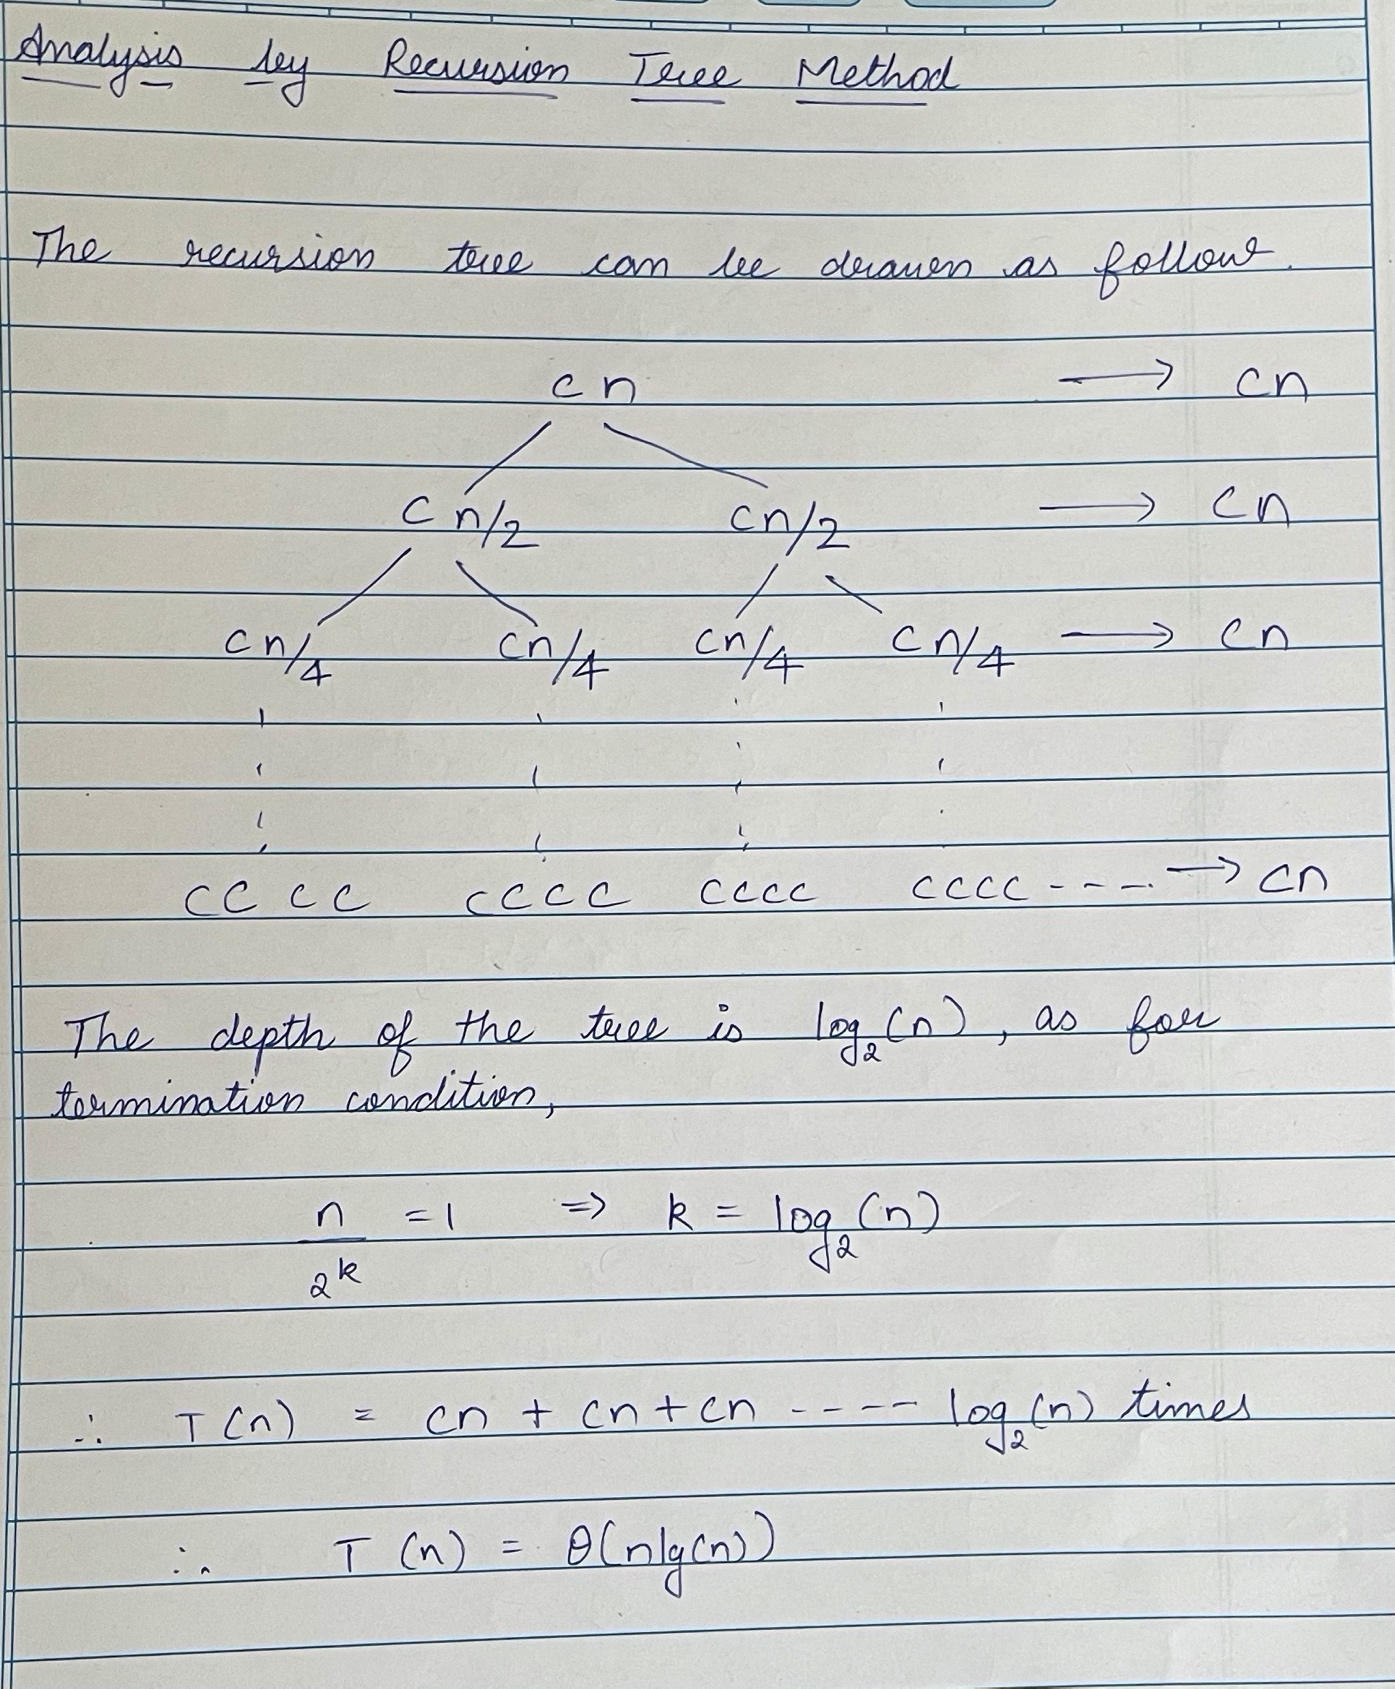 Analysis by Recursion Tree Method
The recursion tree can be drawn as follows.
cn → cn
cn/2 cn/2 → cn
cn/4 cn/4 cn/4 cn/4 → cn
cc cc cccc cccc cccc ---- → cn
The depth of the tree is log₂(n), as for
termination condition,
n/2^k = 1 ⇒ k = log₂(n)
∴ T(n) = cn + cn + cn ---- log₂(n) times
∴ T(n) = θ(nlg(n))